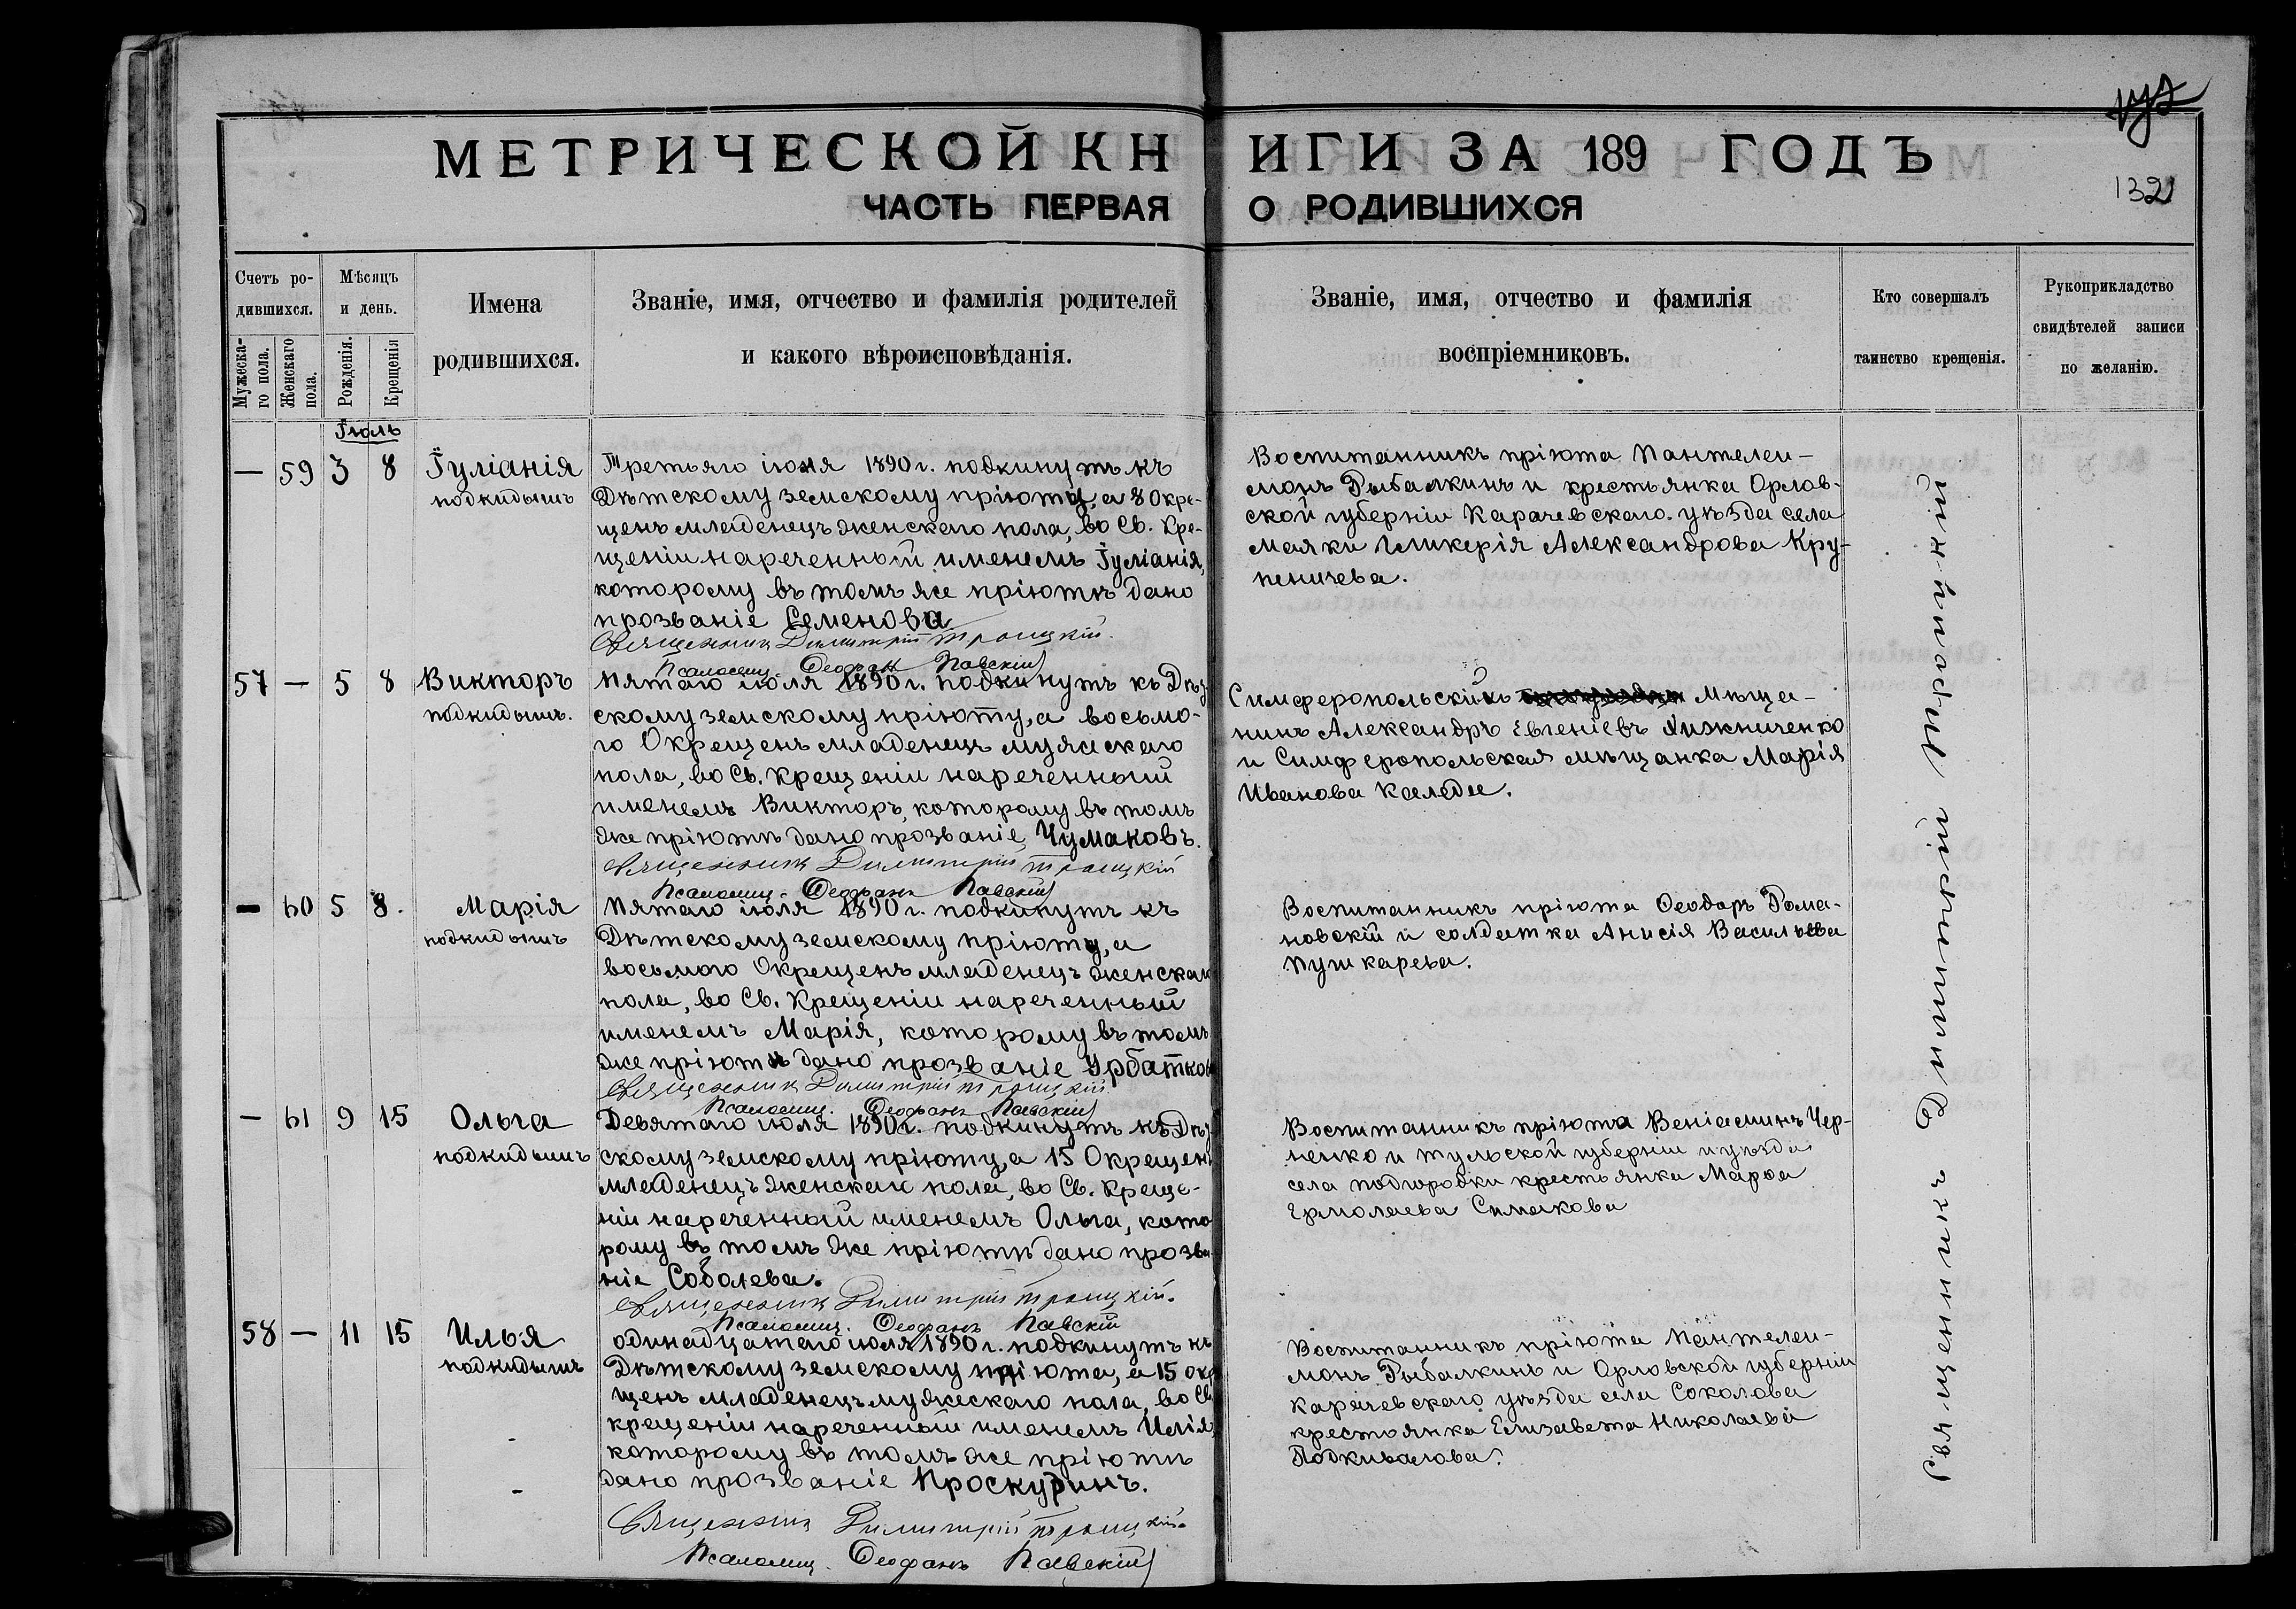 132
МЕТРИЧЕСКОЙ КНИГИ ЗА 189 ГОДЪ
ЧАСТЬ ПЕРВАЯ О РОДИВШИХСЯ
Счетъ ро-
дившихся.
Мужеска-
го пола.
Женскаго
пола.
Мѣсяцъ
и день.
Рожденія.
Крещенія
Имена
родившихся.
Званіе, имя, отчество и фамилія родителей
и какого вѣроисповѣданія.
Званіе, имя, отчество и фамилія
воспріемниковъ.
Кто совершалъ
таинство крещенія.
Рукоприкладство
свидѣтелей записи
по желанію.
Іюль
— 59 3 8
Іуліанія
подкидышъ
Третьяго іюля 1890 г. подкинутъ къ
Дѣтскому земскому пріюту, а 8 Окре-
щенъ младенецъ женскаго пола, во Св. Кре-
щеніи нареченный именемъ Іуліанія,
которому въ томъ же пріютѣ дано
прозваніе Семенова
Священникъ Димитрій Троицкій.
Псаломщ. Ѳеофанъ Павскій
Воспитанникъ пріюта Пантелеи-
монъ Рыбалкинъ и крестьянка Орлов-
ской губерніи Карачевскаго уѣзда села
Маяки Гликерія Александрова Кру-
пеничева.
57 — 5 8
Викторъ
подкидышъ.
Пятаго іюля 1890 г. подкинутъ къ Дѣт
скому земскому пріюту, а восьмо-
го Окрещенъ младенецъ мужскаго
пола, во Св. Крещеніи нареченный
именемъ Викторъ, которому въ томъ
же пріютѣ дано прозваніе Чумаковъ.
Священникъ Димитрій Троицкій
Псаломщ. Ѳеофанъ Павскій
Симферопольскій Мѣща-
нинъ Александръ Евгеніевъ Хижниченко
и Симферопольская мѣщанка Марія
Иванова Каледа.
— 60 5 8.
Марія
подкидышъ
Пятаго іюля 1890 г. подкинутъ къ
Дѣтскому земскому пріюту, а
восьмого Окрещенъ младенецъ женскаго
пола, во Св. Крещеніи нареченный
именемъ Марія, которому въ томъ
же пріютѣ дано прозваніе Урбаткова
Священникъ Димитрій Троицкій
Псаломщ. Ѳеофанъ Павскій
Воспитанникъ пріюта Ѳеодоръ Дома-
новскій и солдатка Анисія Васильева
Пушкарева.
— 61 9 15
Ольга
подкидышъ
Девятаго іюля 1890 г. подкинутъ къ Дѣт
скому земскому пріюту, а 15 Окрещенъ
младенецъ женскаго пола, во Св. Креще-
ніи нареченный именемъ Ольга, кото
рому въ томъ же пріютѣ дано прозва
ніе Соболева.
Священникъ Димитрій Троицкій.
Псаломщ. Ѳеофанъ Павскій
Воспитанникъ пріюта Веніаминъ Чер-
ненко и Тульской губерніи и уѣзда
села подгородки крестьянка Марѳа
Ермолаева Симакова
58 — 11 15
Илья
подкидышъ
одинадцатаго іюля 1890 г. подкинутъ къ
Дѣтскому земскому пріюта, а 15 окр
щенъ младенецъ мужескаго пола, во Св
крещеніи нареченный именемъ Илія,
которому въ томъ же пріютѣ
дано прозваніе Проскуринъ.
Священникъ Димитрій Троицкій.
Псаломщ. Ѳеофанъ Павскій
Воспитанникъ пріюта Пантелеи-
монъ Рыбалкинъ и Орловской губерніи
Карачевскаго уѣзда села Соколова
крестьянка Елизавета Николаева
Подкивалова.
Священникъ Димитрій Троицкій